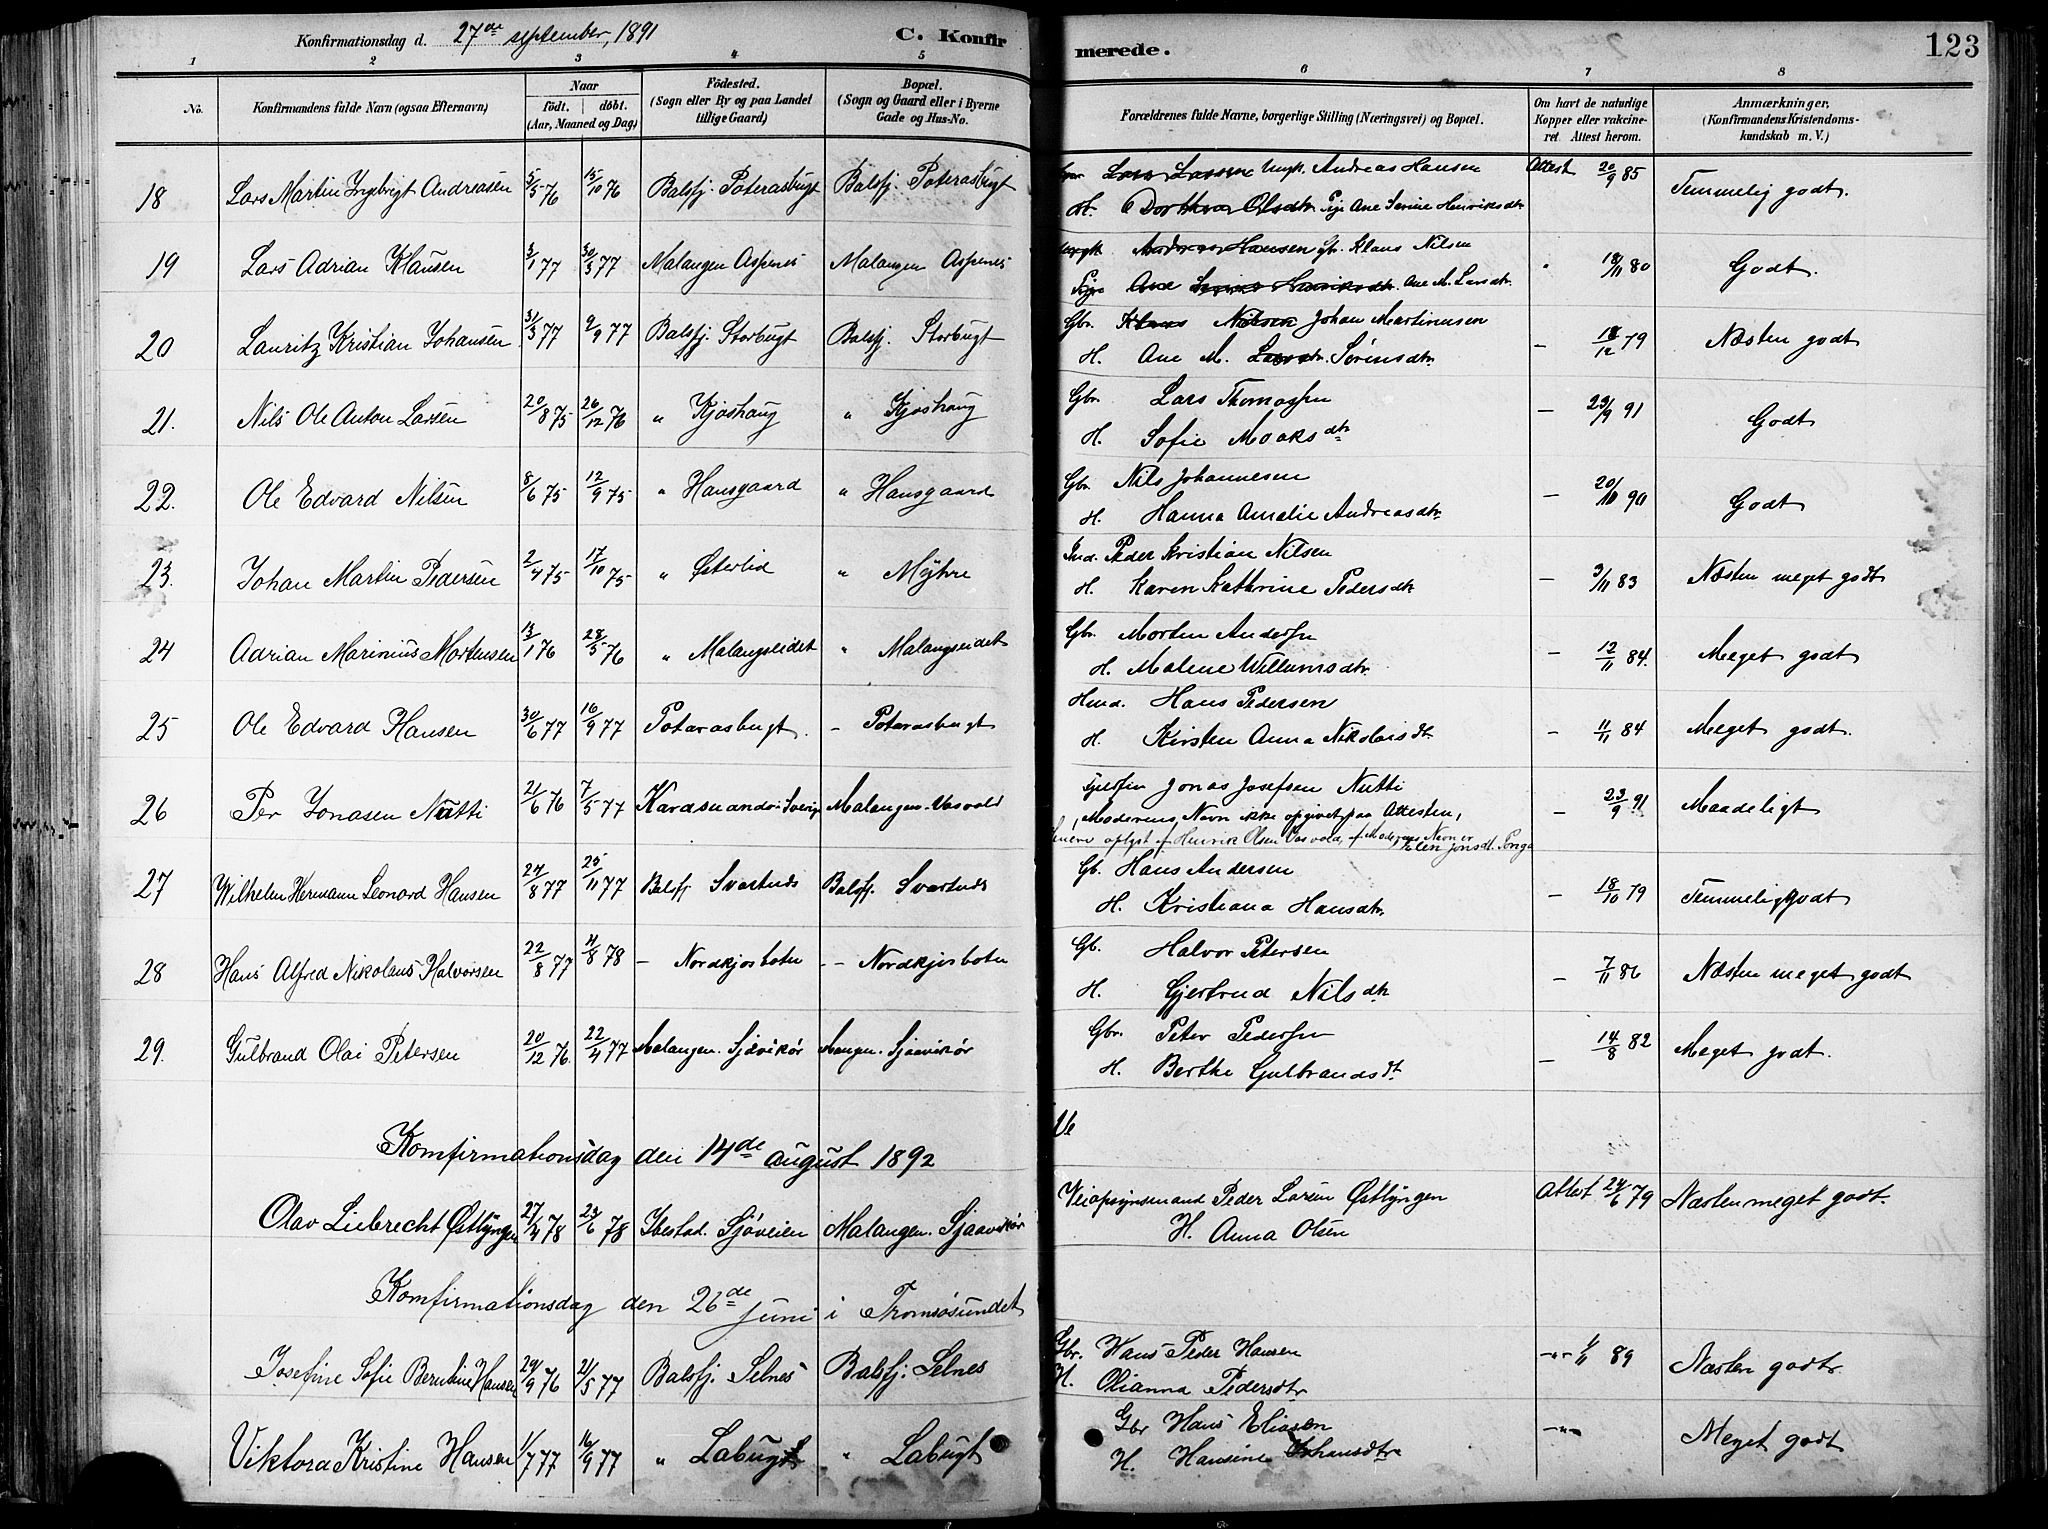 Konfirmationsdag d. 27de september, 1891 C. Konfirmerede. 123
1 2 3 4 5 6 7 8
No. Konfirmandens fulde Navn (ogsaa Efternavn) Naar födt. döbt. (Aar, Maaned og Dag) Födested. (Sogn eller By og paa Landet tillige Gaard) Bopæl. (Sogn og Gaard eller i Byerne Gade og Hus-No. Forældrenes fulde Navne, borgerlige Stilling (Næringsvei) og Bopæl. Om havt de naturlige Kopper eller vakcineret Attest herom. Anmærkninger, (Konfirmandens Kristendomskundskab m. V.)
18 Lars Martin Ingebrigt Andreasen 5/5 76 15/10 76 Balsfj. Poterasbugt Balsfj. Poterasbugt Lars Larsen Ungk. Andreas Hansen Attest 20/9 85 Temmelig godt.
H. Dorthea Olsdtr Pige Ane Serine Henriksdtr
19 Lars Adrian Klausen 3/1 77 30/3 77 Malangen Aspenes Malangen Aspenes Ungk Andreas Hansen Gb. Klaus Nilsen " 18/11 80 Godt.
Pige Ane Serine Henriksdtr. Ane M. Larsdtr.
20 Lauritz Kristian Johansen 31/3 77 9/9 77 Balsfj. Storbugt Balsfj. Storbugt Gbr. Klaus Nilsen Johan Martinusen - 18/12 79 Næsten godt
H. Ane M. Larsdtr. Sørensdtr.
21. Nils Ole Anton Larsen 20/8 75 26/12 76 " Kjoshaug " Kjoshaug Gbr. Lars Thomassen - 23/9 91 Godt
H. Sofie Moaksdtr
22. Ole Edvard Nilsen 8/6 75 12/9 75 " Hansgaard " Hansgaard Gbr. Nils Johannesen - 20/10 90 Godt
H. Hanna Amalie Andreasdtr.
23. Johan Martin Pedersen 2/4 75 17/10 75 " Østerlid " Myhre Ind. Peder Kristian Nilsen - 3/11 83 Næsten meget godt
H. Karen Kathrine Pedersdtr
24 Adrian Marinius Mortensen 13/1 76 28/5 76 " Malangseidet " Malangseidet Gbr. Morten Andersen - 12/11 84. Meget godt
H. Malene Willumsdtr.
25 Ole Edvard Hansen 30/6 77 16/9 77 Potarasbugt. - Potarasbugt Hmd. Hans Pedersen - 11/11 84 Meget godt.
H. Kirsten Anna Nikolaisdt.
26 Per Jonasen Nutti 21/6 76 7/5 77 Karasuando i Sverige Malangen. Vasvold Jonas Josefsen Nutti - 23/9 91 Maadeligt
(Moderens Navn ikke opgivet paa Attesten,
Senere oplyst af Henrik Olsen Vasvold, at Moderens Navn er Elen Jonsdt. Ponga
27 Wilhelm Hermann Leonard Hansen 24/8 77 25/11 77 Balsfj Svartnes Balsfj. Svartnes Gb. Hans Andersen - 18/10 79 Temmelig godt
H. Kristiana Hansdtr.
28 Hans Alfred Nikolaus Halvorsen 22/8 77 11/8 78 - Nordkjosboten - - Nordkjosboten Gb. Halvor Petersen - 7/11 86 Næsten meget godt
H. Gjertrud Nilsdtr
29. Gulbrand Olai Petersen 20/12 76 22/4 77 Malangen. Sjåvikør Mangen. Sjaavikør Gbr. Peter Pedersen - 14/8 82 Meget godt.
H. Berthe Gulbrandsdt.
Komfirmationsdag den 14de august 1892 Ve
Olav Liebrecht Østlyngen 27/4 78 23/6 78 Ibestad. Sjøveien Malangen. Sjaavikør Veiopsynsmand Peder Larsen Østlyngen Attest 24/6 79 Næsten meget godt.
H. Anna Olsen
Komfirmationsdag den 26de Juni i Tromsøsundet
Josefine Sofie Berntine Hansen 29/9 76 21/5 77 Balsfj. Selnes Balsfj. Selnes Gbr. Hans Peder Hansen -"- 1/11 89 Næsten godt
H. Olianna Pedersdtr
Viktora Kristine Hansen 1/7 77 16/9 77 " Labugt " Labugt Gbr Hans Eliasen -"- Meget godt
H. Hansine Johansdtr